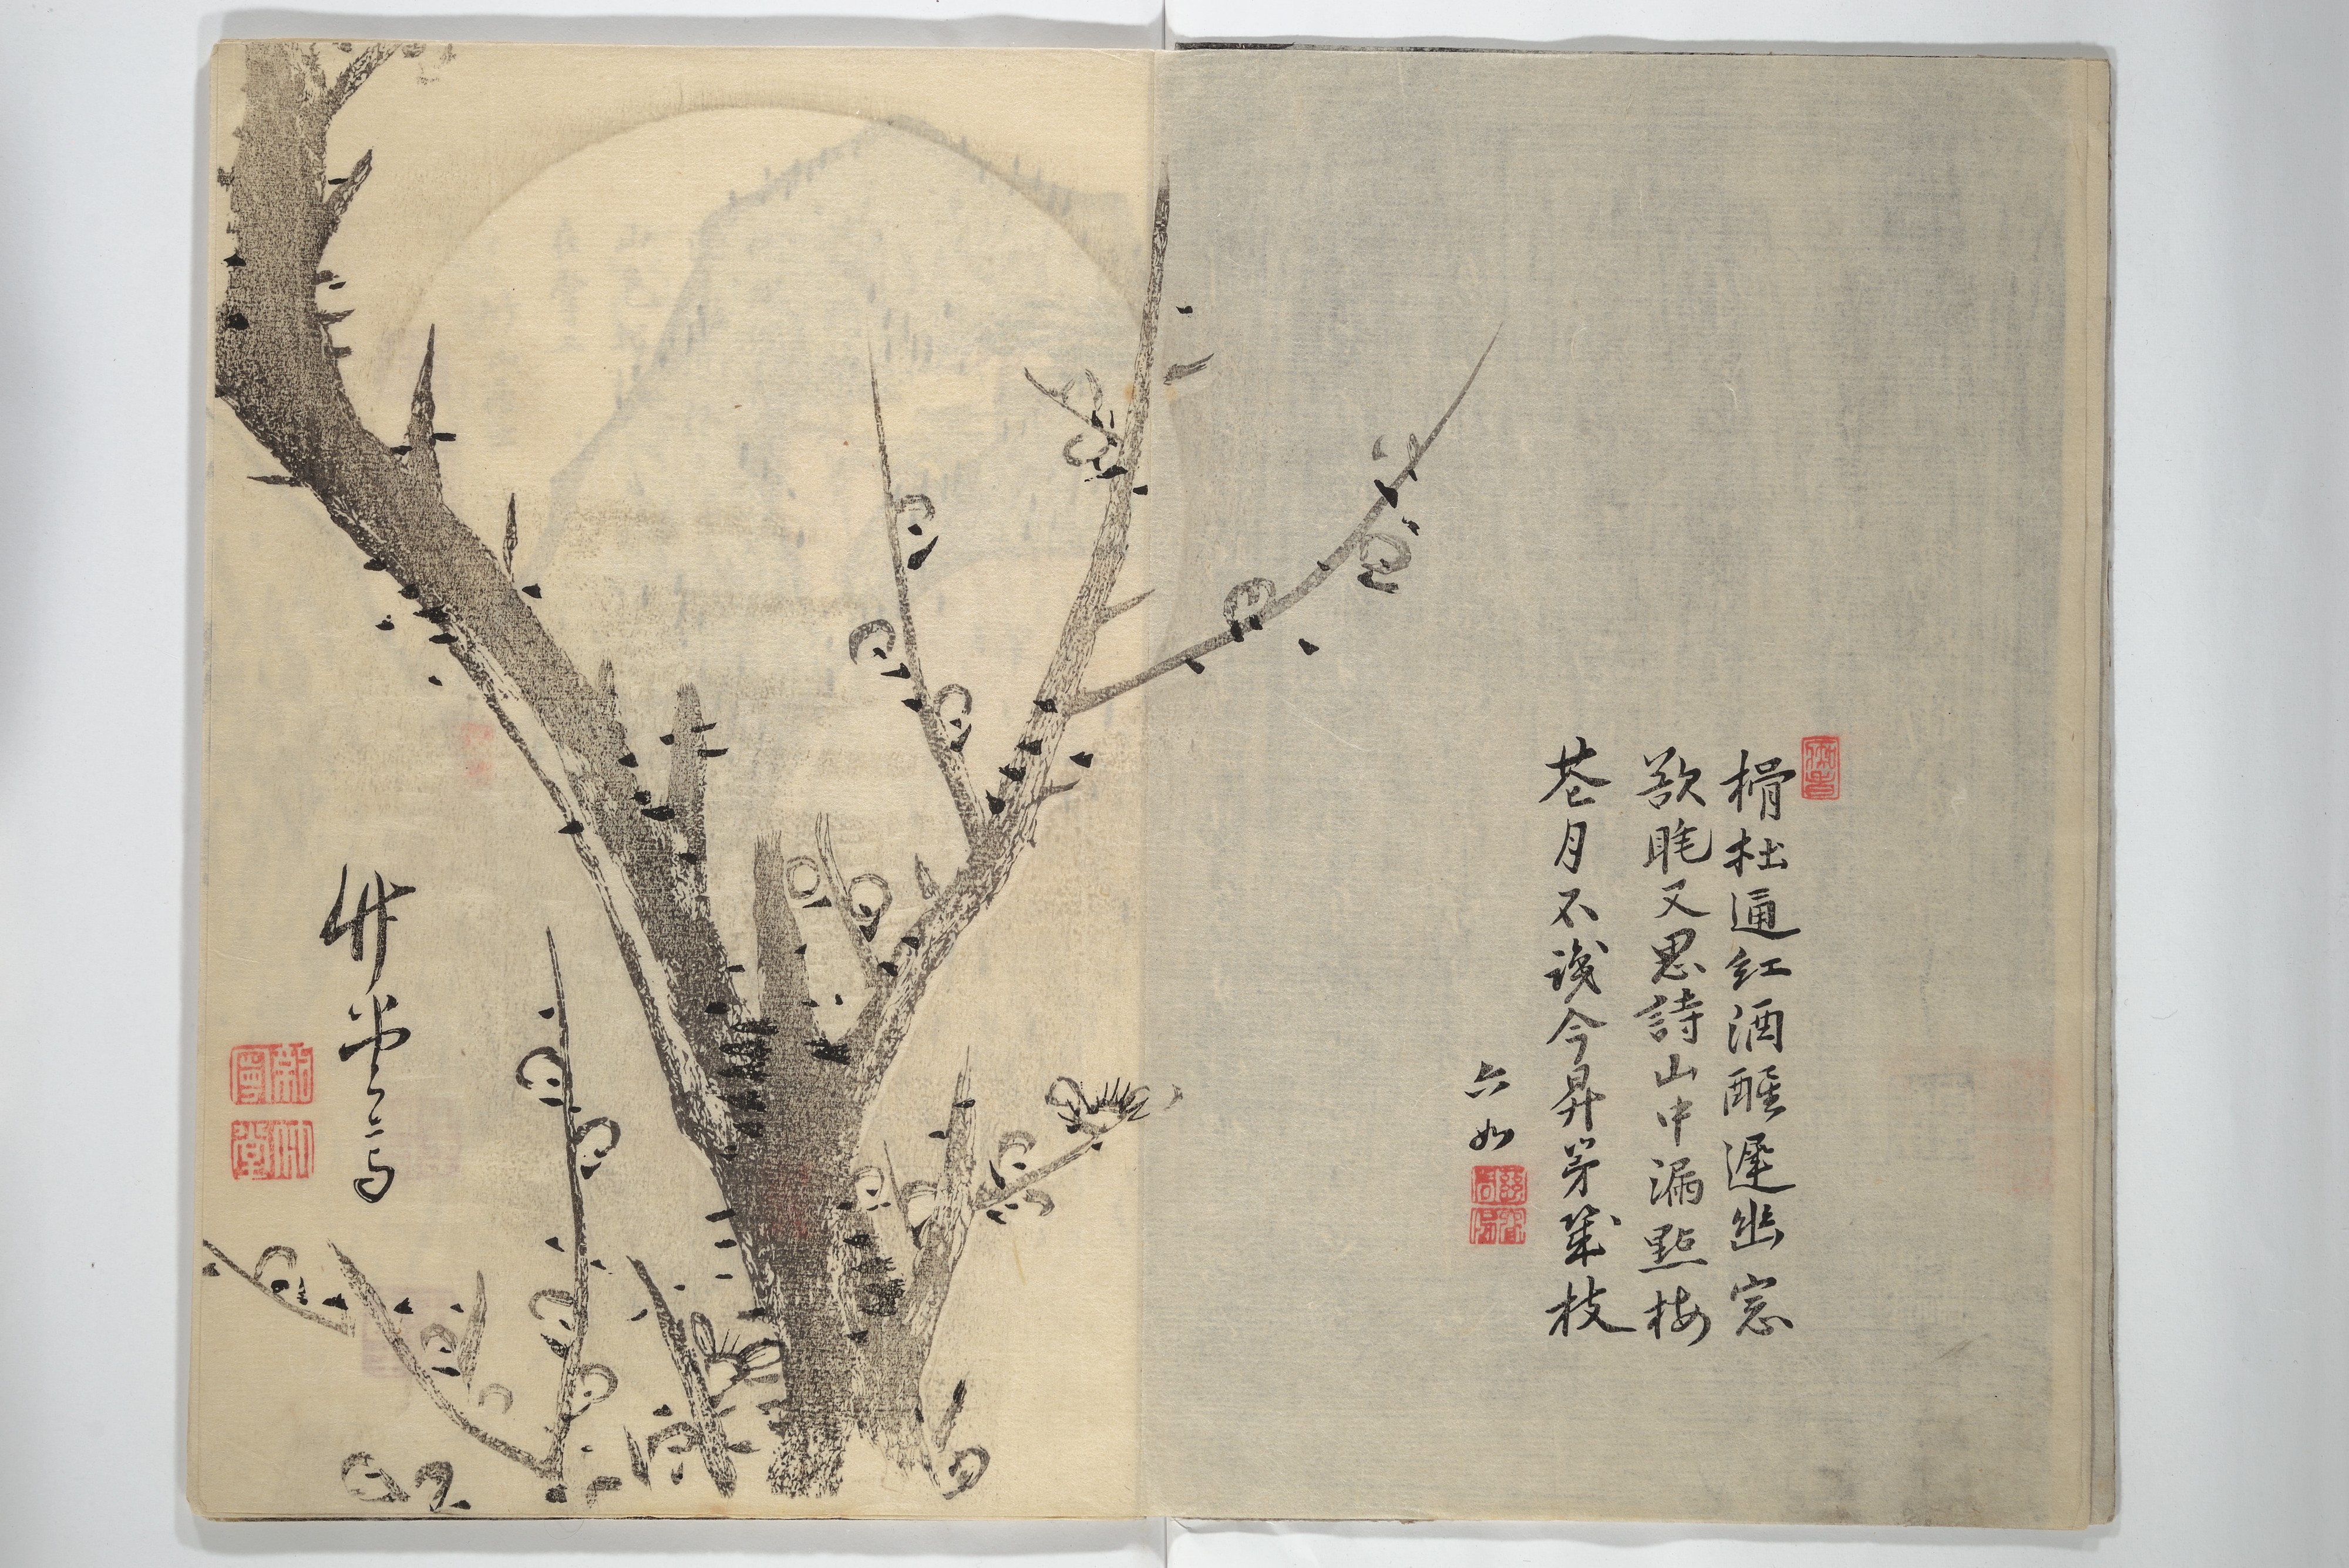 榾柮通紅酒醒遲幽窓
欲眠又思詩山中漏點梅
花月不識今昇第幾枝
六如
竹堂寫
竹堂